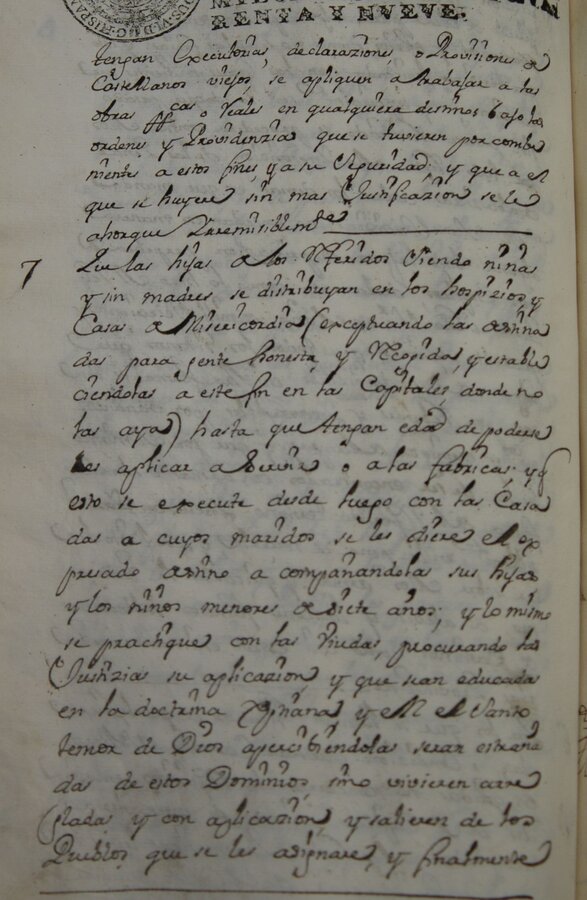 RENTA Y NVEVE.
tengan Executorias, declaraziones, o Provisiones de
Castellanos viejos, se apliquen a trabajar a las
obras pp.cas o reales en qualquiera destinos bajo las
ordenes y Providenzias que se tuvieren por combe
nientes a estos fines, y a su seguridad; y que a el
que se huyere sin mas Justificazion se le
ahorque Irremisiblemte
7 Que las hijas de los referidos siendo niñas
y sin madres se distribuyan en los hospizios, y
Casas de Misericordia (exceptuando las destina
das para gente honesta, y recogida, y estable
ciendolas a este fin en las Capitales, donde no
las aya) hasta que tengan edad de poderse
les aplicar a servir o a las fabricas; y q
esto se execute desde luego con las Casa
das a cuyos maridos se les diere el ex
presado destino acompañandolas sus hijas
y los niños menores de siete años; y lo mismo
se practique con las Viudas, procurando las
Justizias su aplicazion, y que sean educadas
en la doctrina Xptiana, y en el Santo
temor de Dios apercibiendolas seran estraña
das de estos Dominios sino vivieren arre
gladas y con aplicazion, y salieren de los
Pueblos que se les asignare, y finalmente